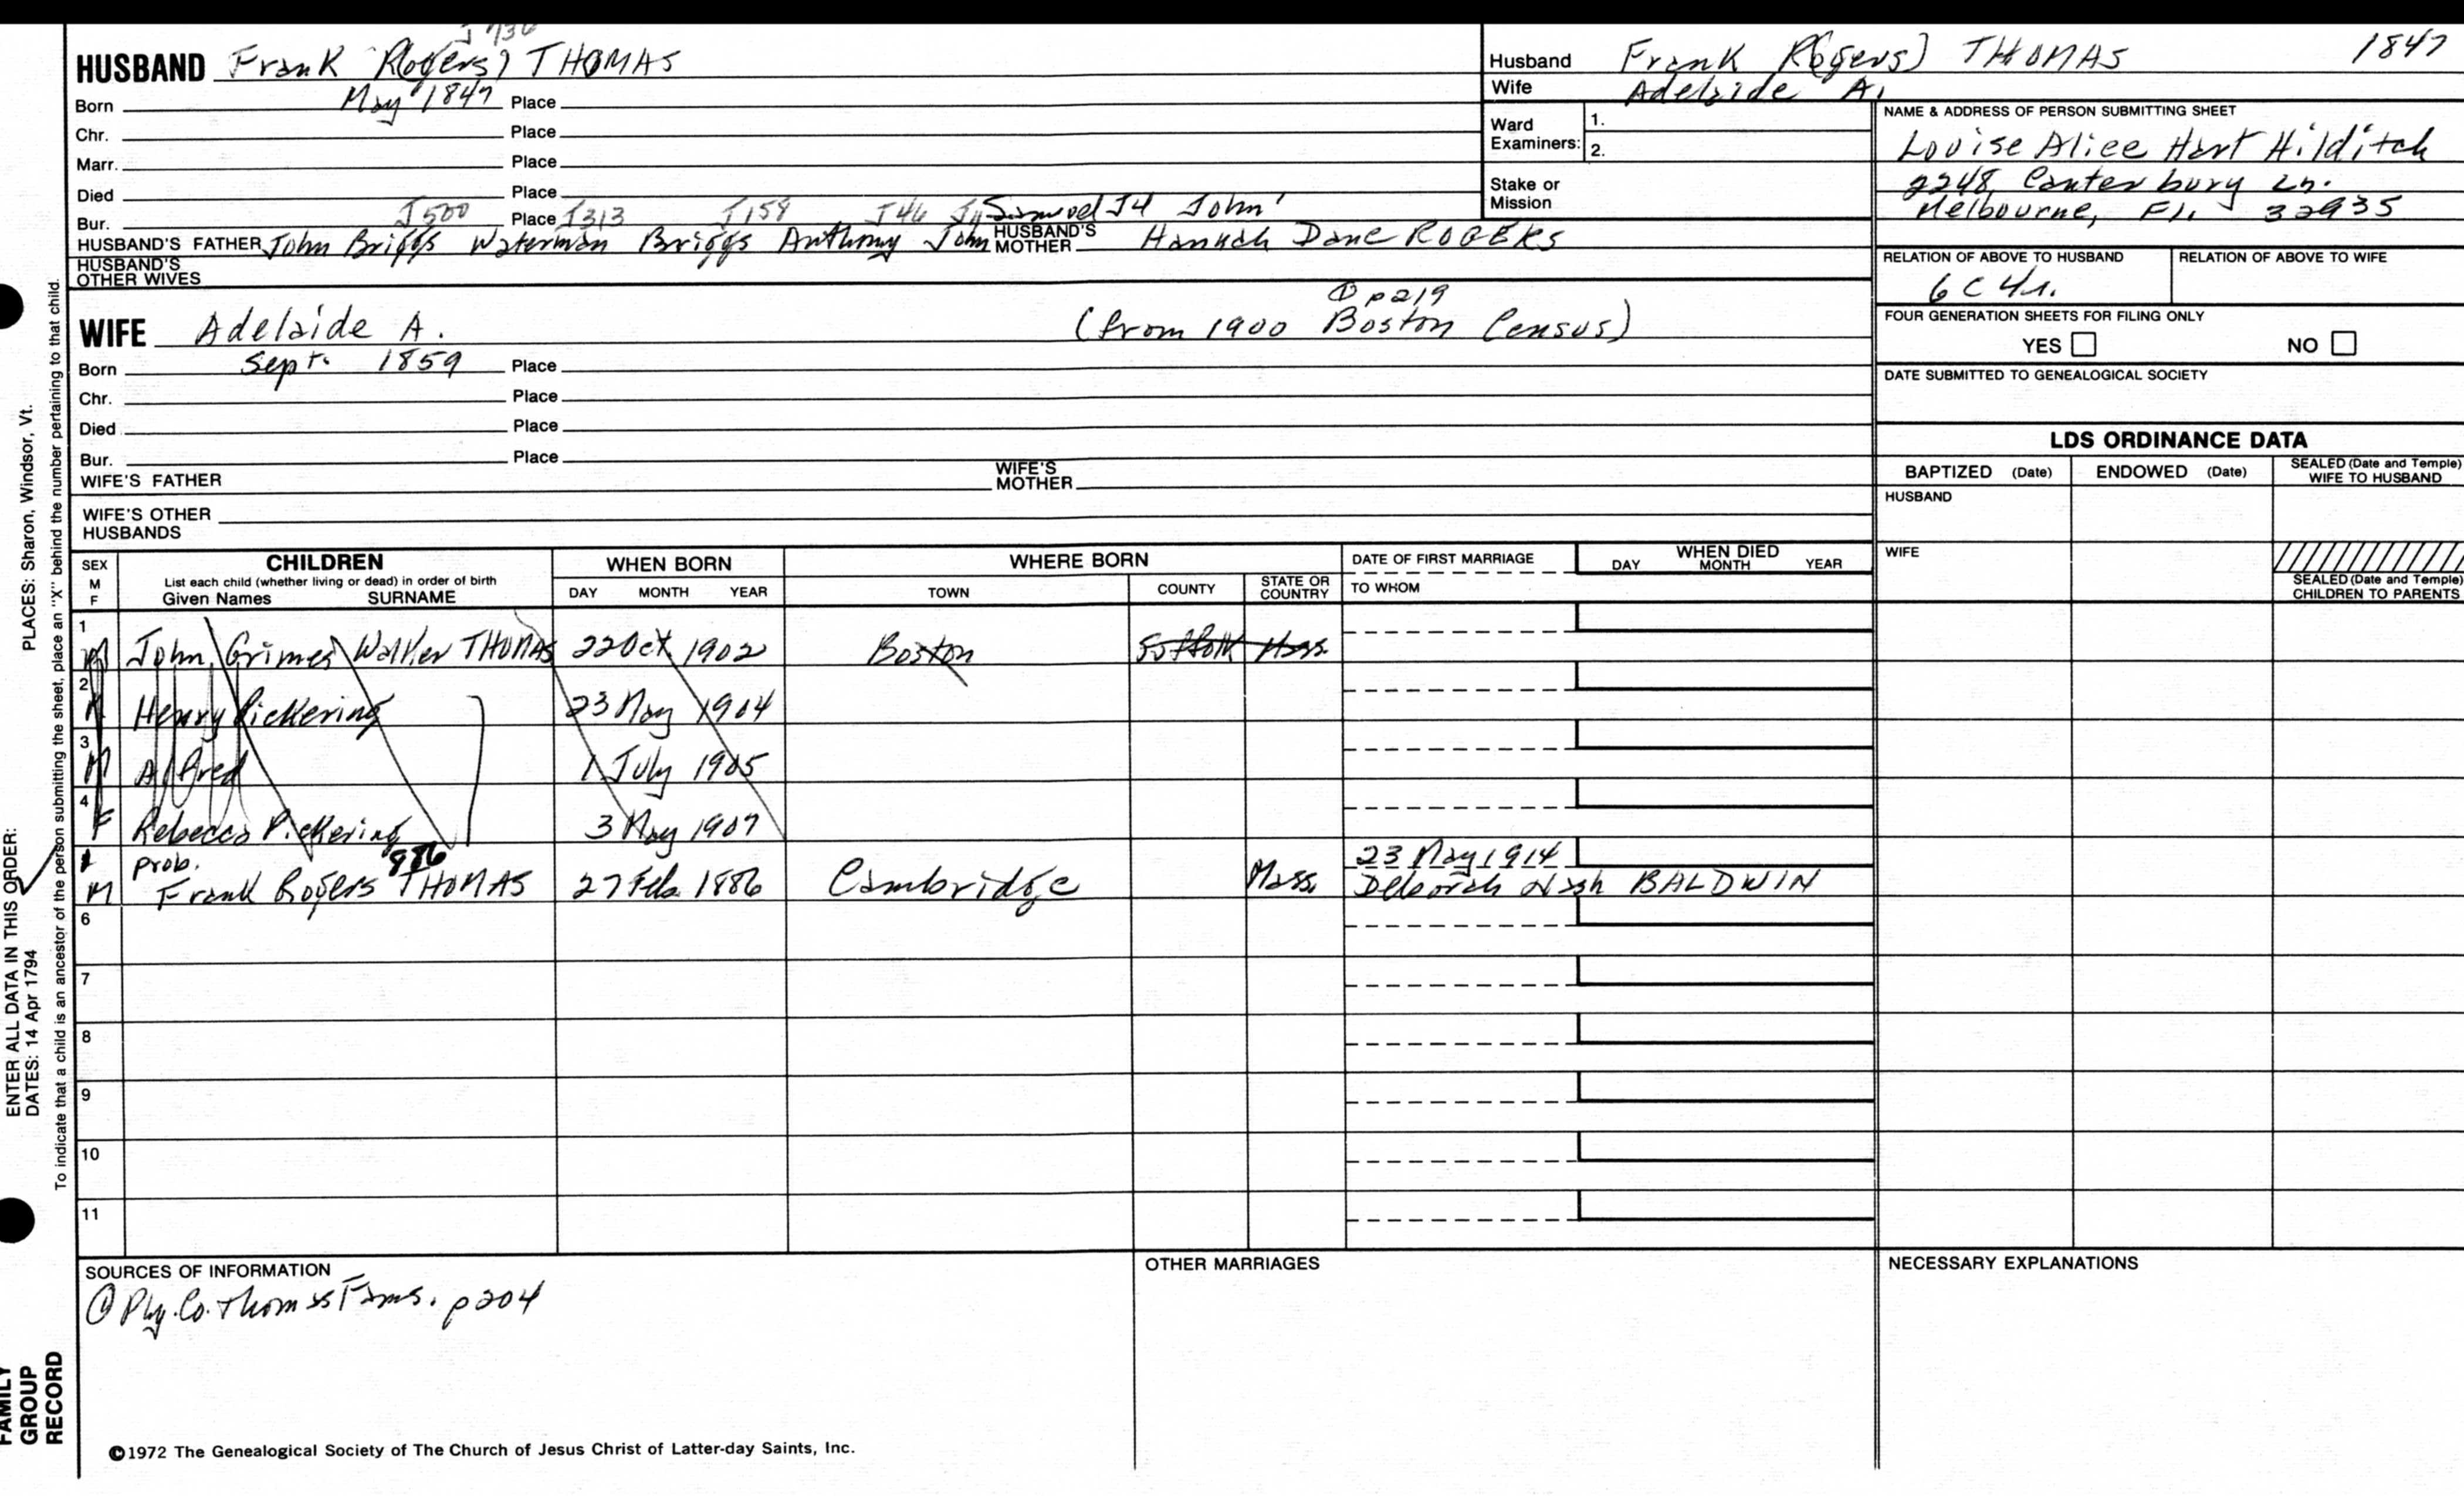 J 736
HUSBAND Frank R(ogers) THOMAS
Born May 1847 Place
Chr. Place
Marr. Place
Died Place
Bur. Place
J500 J313 J159 J46 Samuel J4 John
HUSBAND'S FATHER John Briggs Waterman Briggs Anthony John HUSBAND'S MOTHER Hannah Dane ROGERS
HUSBAND'S OTHER WIVES
① p219
WIFE Adelaide A. (from 1900 Boston Census)
Born Sept. 1859 Place
Chr. Place
Died Place
Bur. Place
WIFE'S FATHER WIFE'S MOTHER
WIFE'S OTHER HUSBANDS
Husband Frank R(ogers) THOMAS 1847
Wife Adelaide A.
Ward Examiners: 1.
2.
Stake or Mission
NAME & ADDRESS OF PERSON SUBMITTING SHEET
Louise Alice Hart Hilditch
2248 Canterbury Ln.
Melbourne, Fl. 32935
RELATION OF ABOVE TO HUSBAND RELATION OF ABOVE TO WIFE
6C4r.
FOUR GENERATION SHEETS FOR FILING ONLY
YES NO
DATE SUBMITTED TO GENEALOGICAL SOCIETY
LDS ORDINANCE DATA
BAPTIZED (Date) ENDOWED (Date) SEALED (Date and Temple) WIFE TO HUSBAND
HUSBAND
WIFE
SEALED (Date and Temple) CHILDREN TO PARENTS
SEX M F
CHILDREN
List each child (whether living or dead) in order of birth
Given Names SURNAME
WHEN BORN
DAY MONTH YEAR
WHERE BORN
TOWN COUNTY STATE OR COUNTRY
DATE OF FIRST MARRIAGE
TO WHOM
WHEN DIED
DAY MONTH YEAR
1 M John Grimes Walker THOMAS 22 Oct 1902 Boston Suffolk Mass.
2 M Henry Pickering 23 May 1904
3 M Alfred 1 July 1905
4 F Rebecca Pickering 3 May 1907
1 prob. 986 23 May 1914
M Frank Rogers THOMAS 27 Feb 1886 Cambridge Mass. Deborah Nash BALDWIN
6
7
8
9
10
11
SOURCES OF INFORMATION
① Ply. Co. Thomas Fams. p204
OTHER MARRIAGES
NECESSARY EXPLANATIONS
©1972 The Genealogical Society of The Church of Jesus Christ of Latter-day Saints, Inc.
ENTER ALL DATA IN THIS ORDER:
DATES: 14 Apr 1794 PLACES: Sharon, Windsor, Vt.
To indicate that a child is an ancestor of the person submitting the sheet, place an "X" behind the number pertaining to that child.
FAMILY
GROUP
RECORD